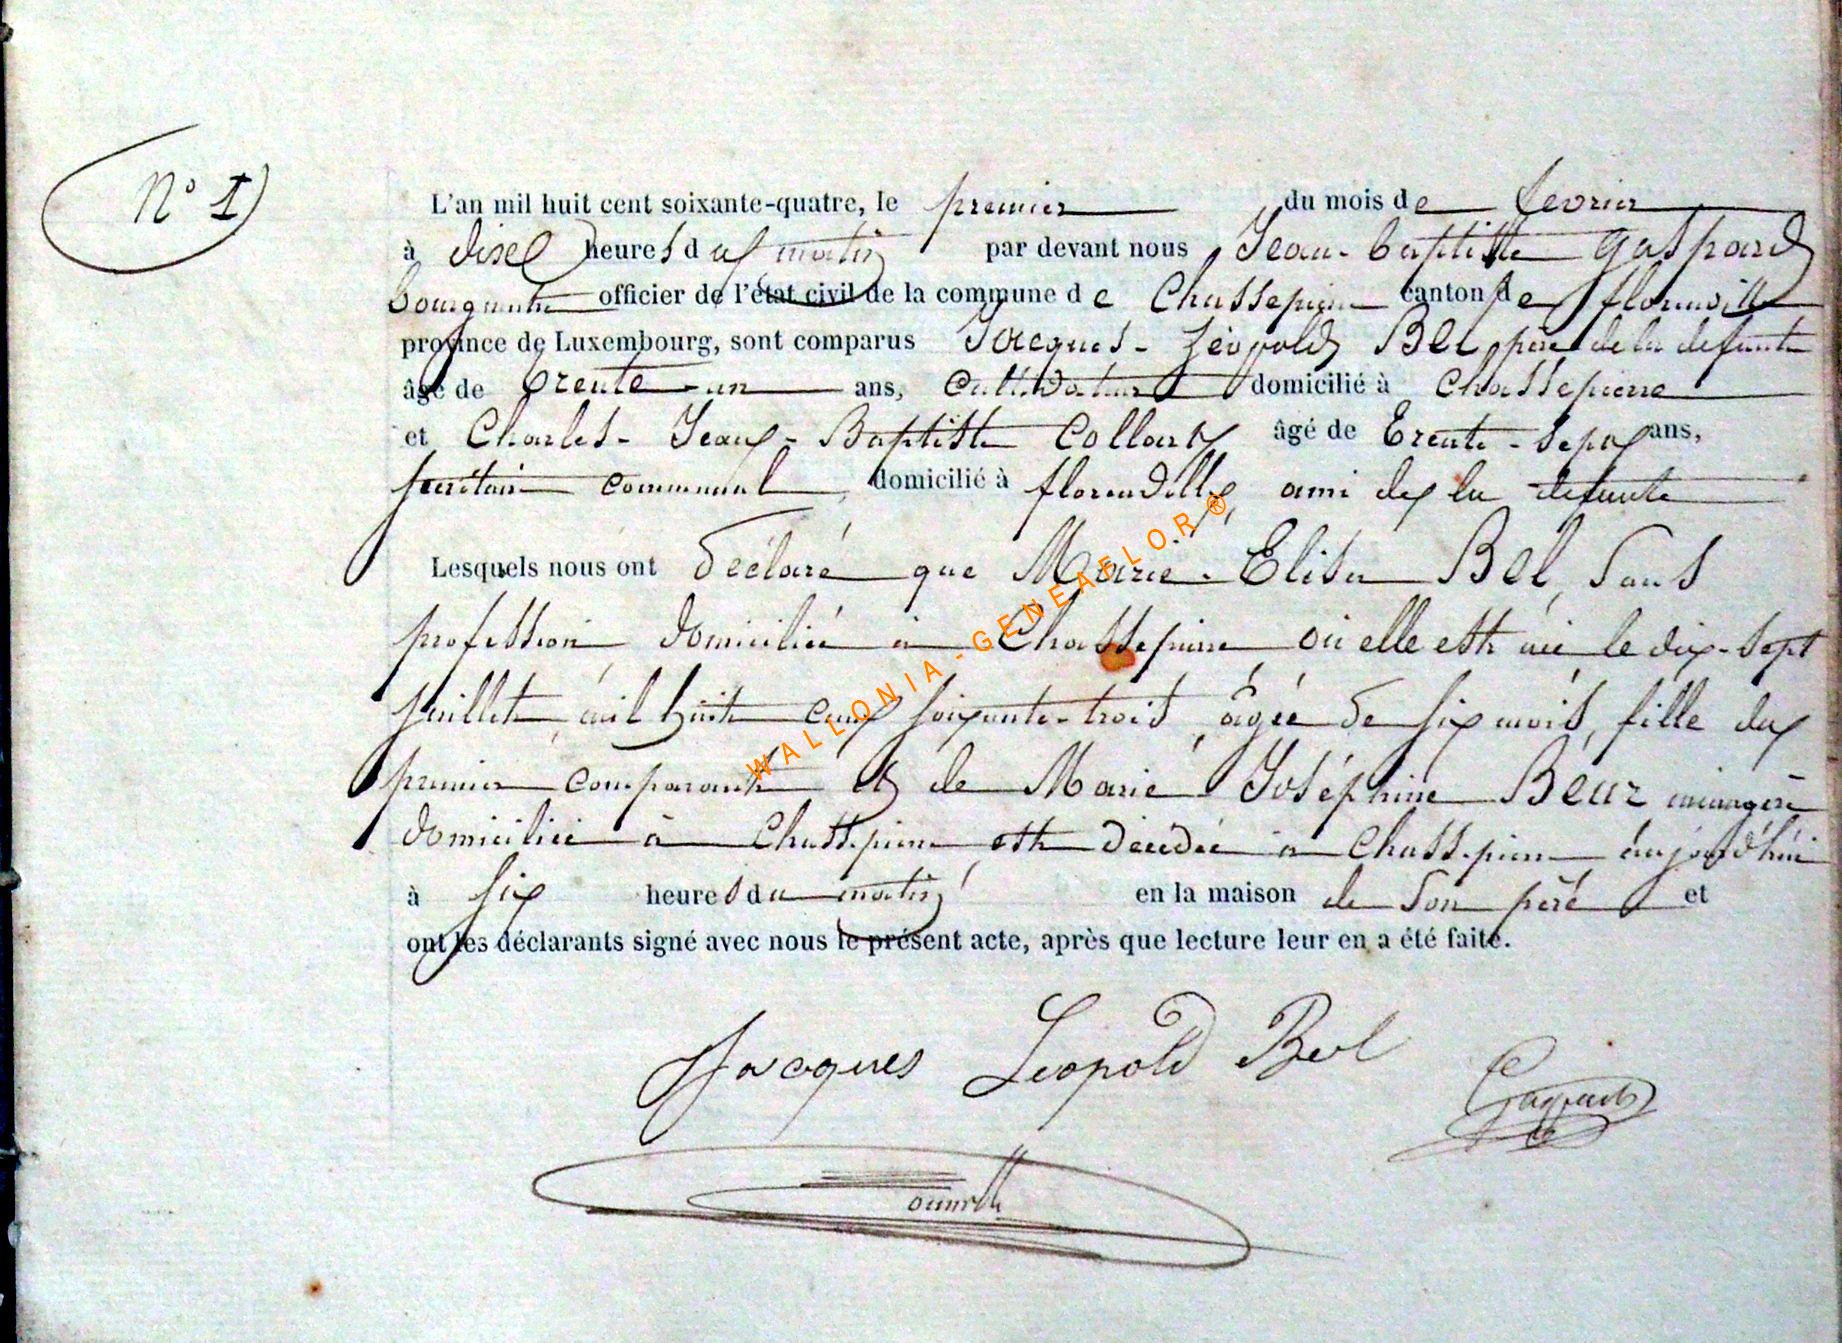 N° 1
L'an mil huit cent soixante-quatre, le premier du mois de fevrier
à dix heures du matin par devant nous Jean-baptiste gaspard
bourgmestre officier de l'état civil de la commune de Chassepierre canton de florenville
province de Luxembourg, sont comparus Jacques-Léopold Bel père de la defunte
âgé de trente-un ans, cultivateur domicilié à Chassepierre
et Charles-Jean-Baptiste Collard âgé de trente-sept ans,
secrétaire communal, domicilié à florenville, ami de la defunte
Lesquels nous ont déclaré que Marie-Elisa Bel, sans
profession domiciliée à Chassepierre où elle est née le dix-sept
juillet mil huit cent soixante-trois, âgée de six mois, fille du
premier comparant et de Marie Joséphine ménagère
domiciliée à Chassepierre, est décédée à Chassepierre aujourd'hui
à six heures du matin en la maison de son père et
ont les déclarants signé avec nous le présent acte, après que lecture leur en a été faite.
Jacques Leopold Bel
Gaspard
WALLONIA-GENEAFLOR®